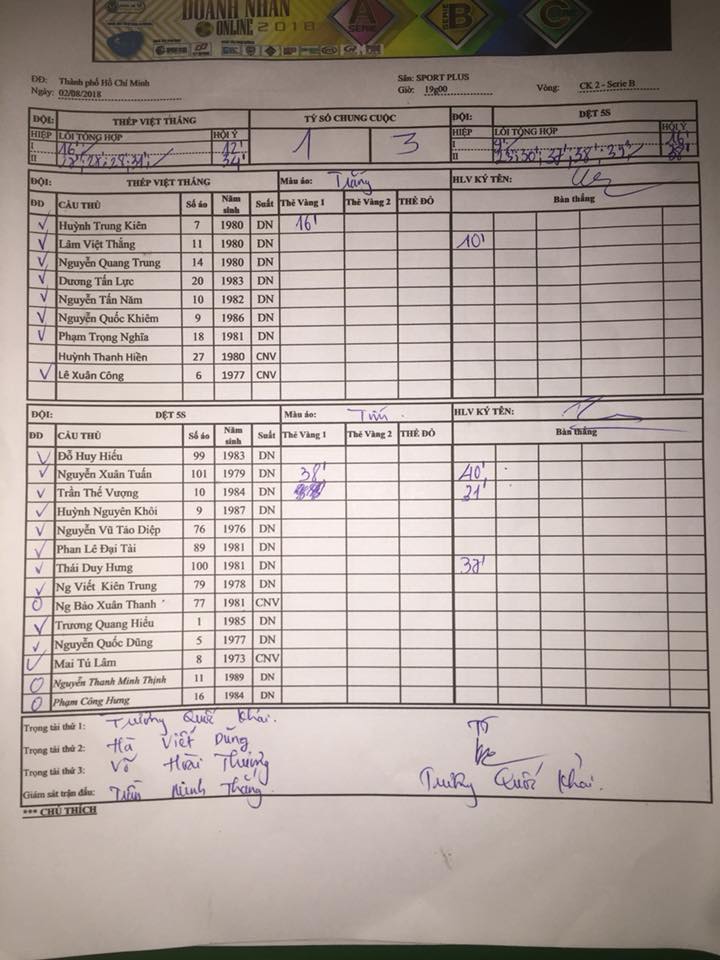 DOANH NHÂN
ONLINE 2018
A SERIE
SERIE B
C
ĐĐ: Thành phố Hồ Chí Minh Sân: SPORT PLUS
Ngày: 02/08/2018 Giờ: 19g00 Vòng: CK 2 - Serie B
ĐỘI: THÉP VIỆT THẮNG TỶ SỐ CHUNG CUỘC ĐỘI: DỆT 5S
HIỆP LỖI TỔNG HỢP HỘI Ý 1 3 HIỆP LỖI TỔNG HỢP HỘI Ý
I 16' 12' I 9' 16'
II 34' II 38'
ĐỘI: THÉP VIỆT THẮNG Màu áo: Trắng HLV KÝ TÊN:
ĐD CẦU THỦ Số áo Năm sinh Suất Thẻ Vàng 1 Thẻ Vàng 2 THẺ ĐỎ Bàn thắng
✓ Huỳnh Trung Kiên 7 1980 DN 16'
✓ Lâm Việt Thắng 11 1980 DN 10'
✓ Nguyễn Quang Trung 14 1980 DN
✓ Dương Tấn Lực 20 1983 DN
✓ Nguyễn Tấn Năm 10 1982 DN
✓ Nguyễn Quốc Khiêm 9 1986 DN
✓ Phạm Trọng Nghĩa 18 1981 DN
Huỳnh Thanh Hiền 27 1980 CNV
✓ Lê Xuân Công 6 1977 CNV
ĐỘI: DỆT 5S Màu áo: Tím HLV KÝ TÊN:
ĐD CẦU THỦ Số áo Năm sinh Suất Thẻ Vàng 1 Thẻ Vàng 2 THẺ ĐỎ Bàn thắng
✓ Đỗ Huy Hiếu 99 1983 DN
✓ Nguyễn Xuân Tuấn 101 1979 DN 38' 40'
✓ Trần Thế Vượng 10 1984 DN 21'
✓ Huỳnh Nguyên Khôi 9 1987 DN
✓ Nguyễn Vũ Táo Diệp 76 1976 DN
✓ Phan Lê Đại Tài 89 1981 DN
✓ Thái Duy Hưng 100 1981 DN 37'
✓ Ng Viết Kiên Trung 79 1978 DN
O Ng Bảo Xuân Thanh 77 1981 CNV
✓ Trương Quang Hiếu 1 1985 DN
✓ Nguyễn Quốc Dũng 5 1977 DN
✓ Mai Tú Lâm 8 1973 CNV
O Nguyễn Thanh Minh Thịnh 11 1989 DN
O Phạm Công Hưng 16 1984 DN
Trọng tài thứ 1: Trương Quốc Khải.
Trọng tài thứ 2: Hà Viết Dũng
Trọng tài thứ 3: Võ Hoài Thượng
Giám sát trận đấu: Trần Minh Thắng.
Trương Quốc Khải.
*** CHÚ THÍCH